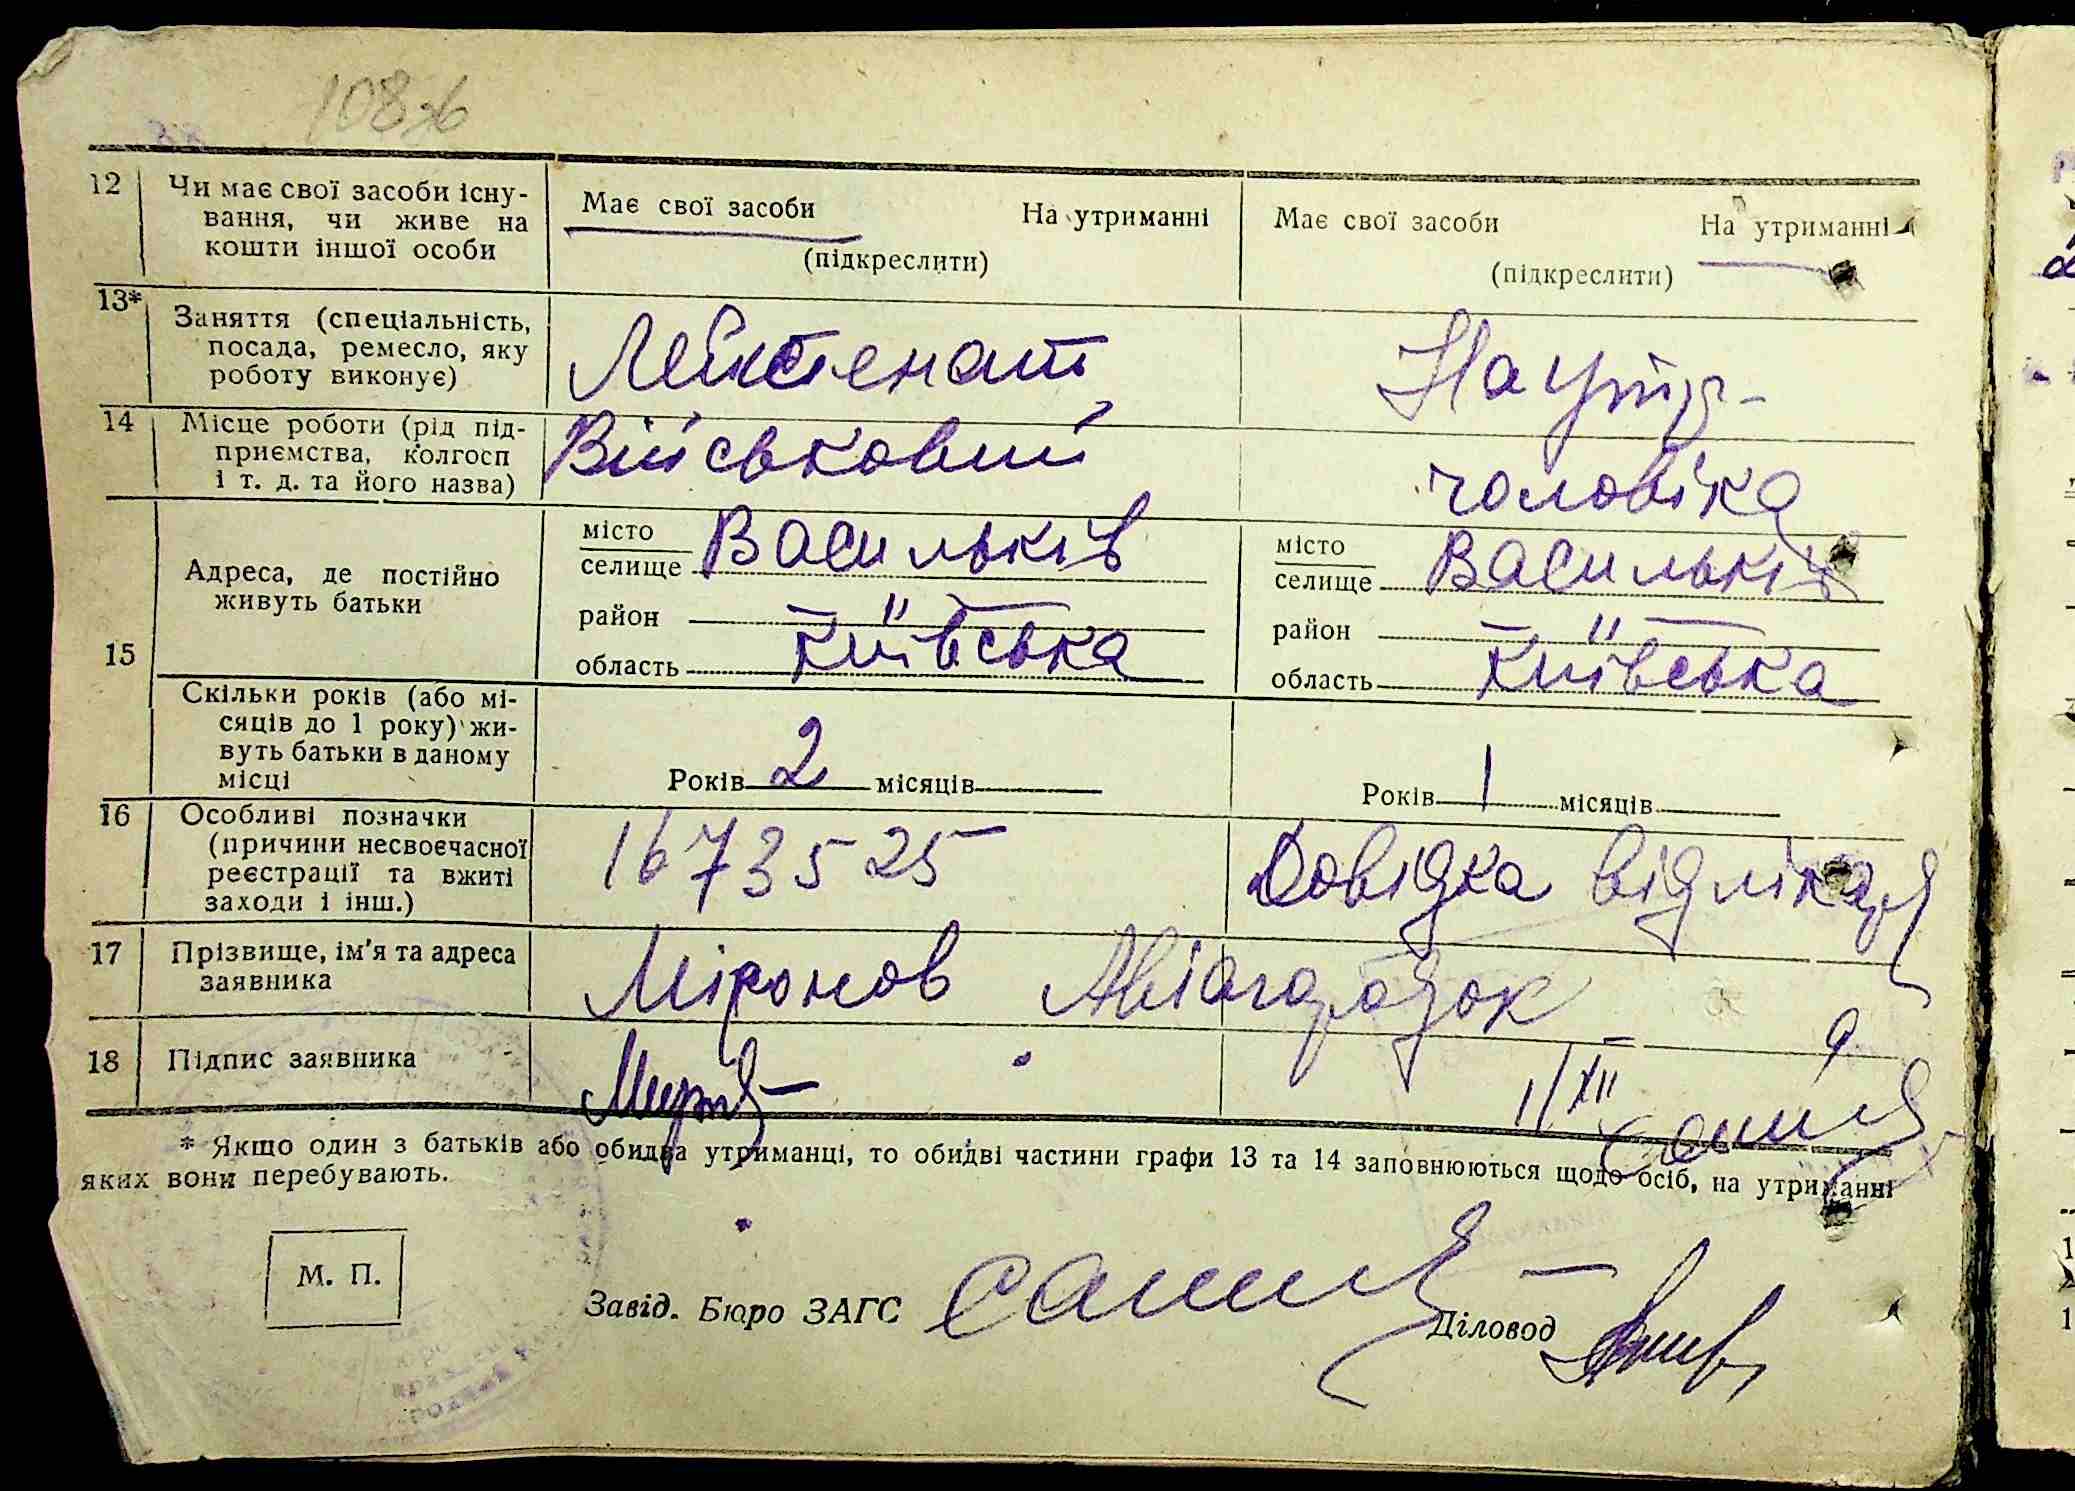 108зв
12 Чи має свої засоби існу-
вання, чи живе на
кошти іншої особи
Має свої засоби На утриманні
(підкреслити)
Має свої засоби На утриманні
(підкреслити)
13* Заняття (спеціальність,
посада, ремесло, яку
роботу виконує)
Лейтенант
На утр-
14 Місце роботи (рід під-
приємства, колгосп
і т. д. та його назва)
Військовий
чоловіка
15 Адреса, де постійно
живуть батьки
місто
селище Васильків
район — " —
область Київська
місто
селище Васильків
район — " —
область Київська
Скільки років (або мі-
сяців до 1 року) жи-
вуть батьки в даному
місці
Років 2 місяців
Років 1 місяців
16 Особливі позначки
(причини несвоєчасної
реєстрації та вжиті
заходи і інш.)
1673525
Довідка від лікаря
17 Прізвище, ім'я та адреса
заявника
Міронов Авіагородок 9
18 Підпис заявника
1/XII
* Якщо один з батьків або обидва утриманці, то обидві частини графи 13 та 14 заповнюються щодо осіб, на утриманні
яких вони перебувають.
М. П.
Завід. Бюро ЗАГС
Діловод